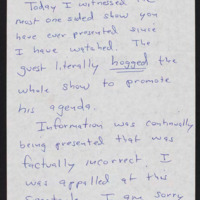 Today I witnessed the
most one sided show you
have ever presented since
I have watched. The
guest literally hogged the
whole show to promote
his agenda.
Information was continually
being presented that was
factually incorrect. I
was appalled at this
I am sorry